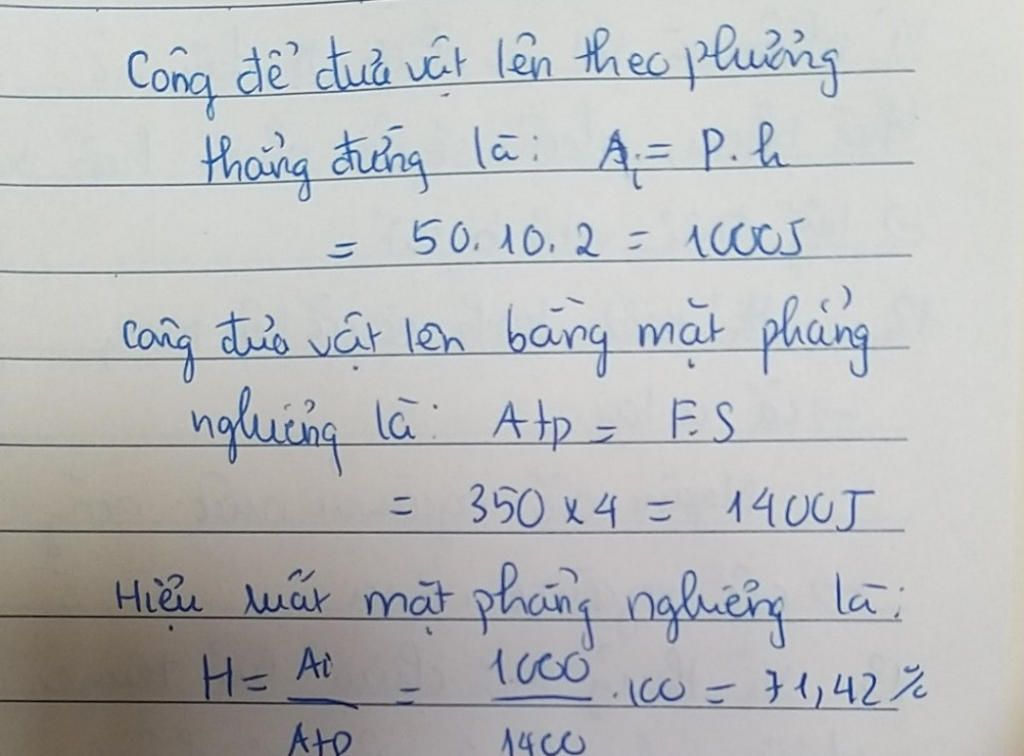 Công để đưa vật lên theo phương
thẳng đứng là: Ai = P.h
= 50.10.2 = 1000J
Công đưa vật lên bằng mặt phẳng
nghiêng là: Atp = F.S
= 350 x 4 = 1400J
Hiệu suất mặt phẳng nghiêng là:
H = Ai/Atp = 1000/1400 .100 = 71,42%